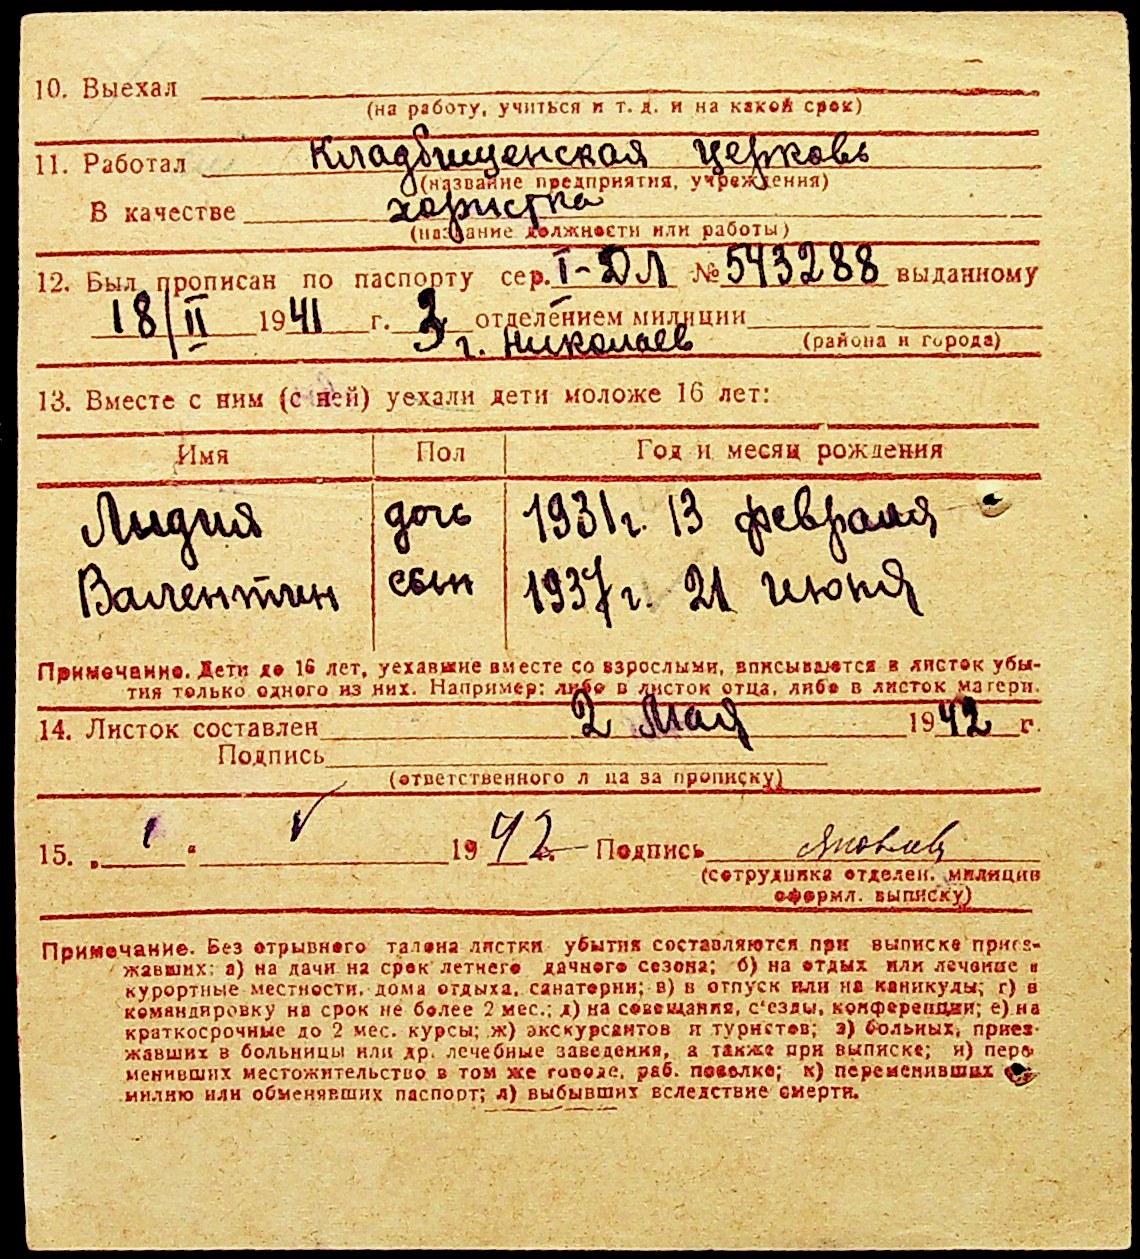 10. Выехал
(на работу, учиться и т. д. и на какой срок)
11. Работал Кладбищенская церковь
(название предприятия, учреждения)
В качестве хористка
(название должности или работы)
12. Был прописан по паспорту сер. I-ДЛ № 543288 выданному
18/II 1941 г. 3 отделением милиции
г. Николаев (района и города)
13. Вместе с ним (с ней) уехали дети моложе 16 лет:
Имя Пол Год и месяц рождения
Лидия дочь 1931 г. 13 февраля
Валентин сын 1937 г. 21 июня
Примечание. Дети до 16 лет, уехавшие вместе со взрослыми, вписываются в листок убы-
тия только одного из них. Например: либо в листок отца, либо в листок матери.
14. Листок составлен 2 Мая 1942 г.
Подпись
(ответственного л ца за прописку)
15. „ 1 “ V 1942 Подпись Яковлев
(сотрудника отделен. милиции
оформл. выписку)
Примечание. Без отрывного талона листки убытия составляются при выписке приез-
жавших: а) на дачи на срок летнего дачного сезона; б) на отдых или лечение в
курортные местности, дома отдыха, санатории; в) в отпуск или на каникулы; г) в
командировку на срок не более 2 мес.; д) на совещания, с'езды, конференции; е) на
краткосрочные до 2 мес. курсы; ж) экскурсантов и туристов; з) больных, приез-
жавших в больницы или др. лечебные заведения, а также при выписке; и) пере
менивших местожительство в том же городе, раб. поселке; к) переменивших
милию или обменявших паспорт; л) выбывших вследствие смерти.